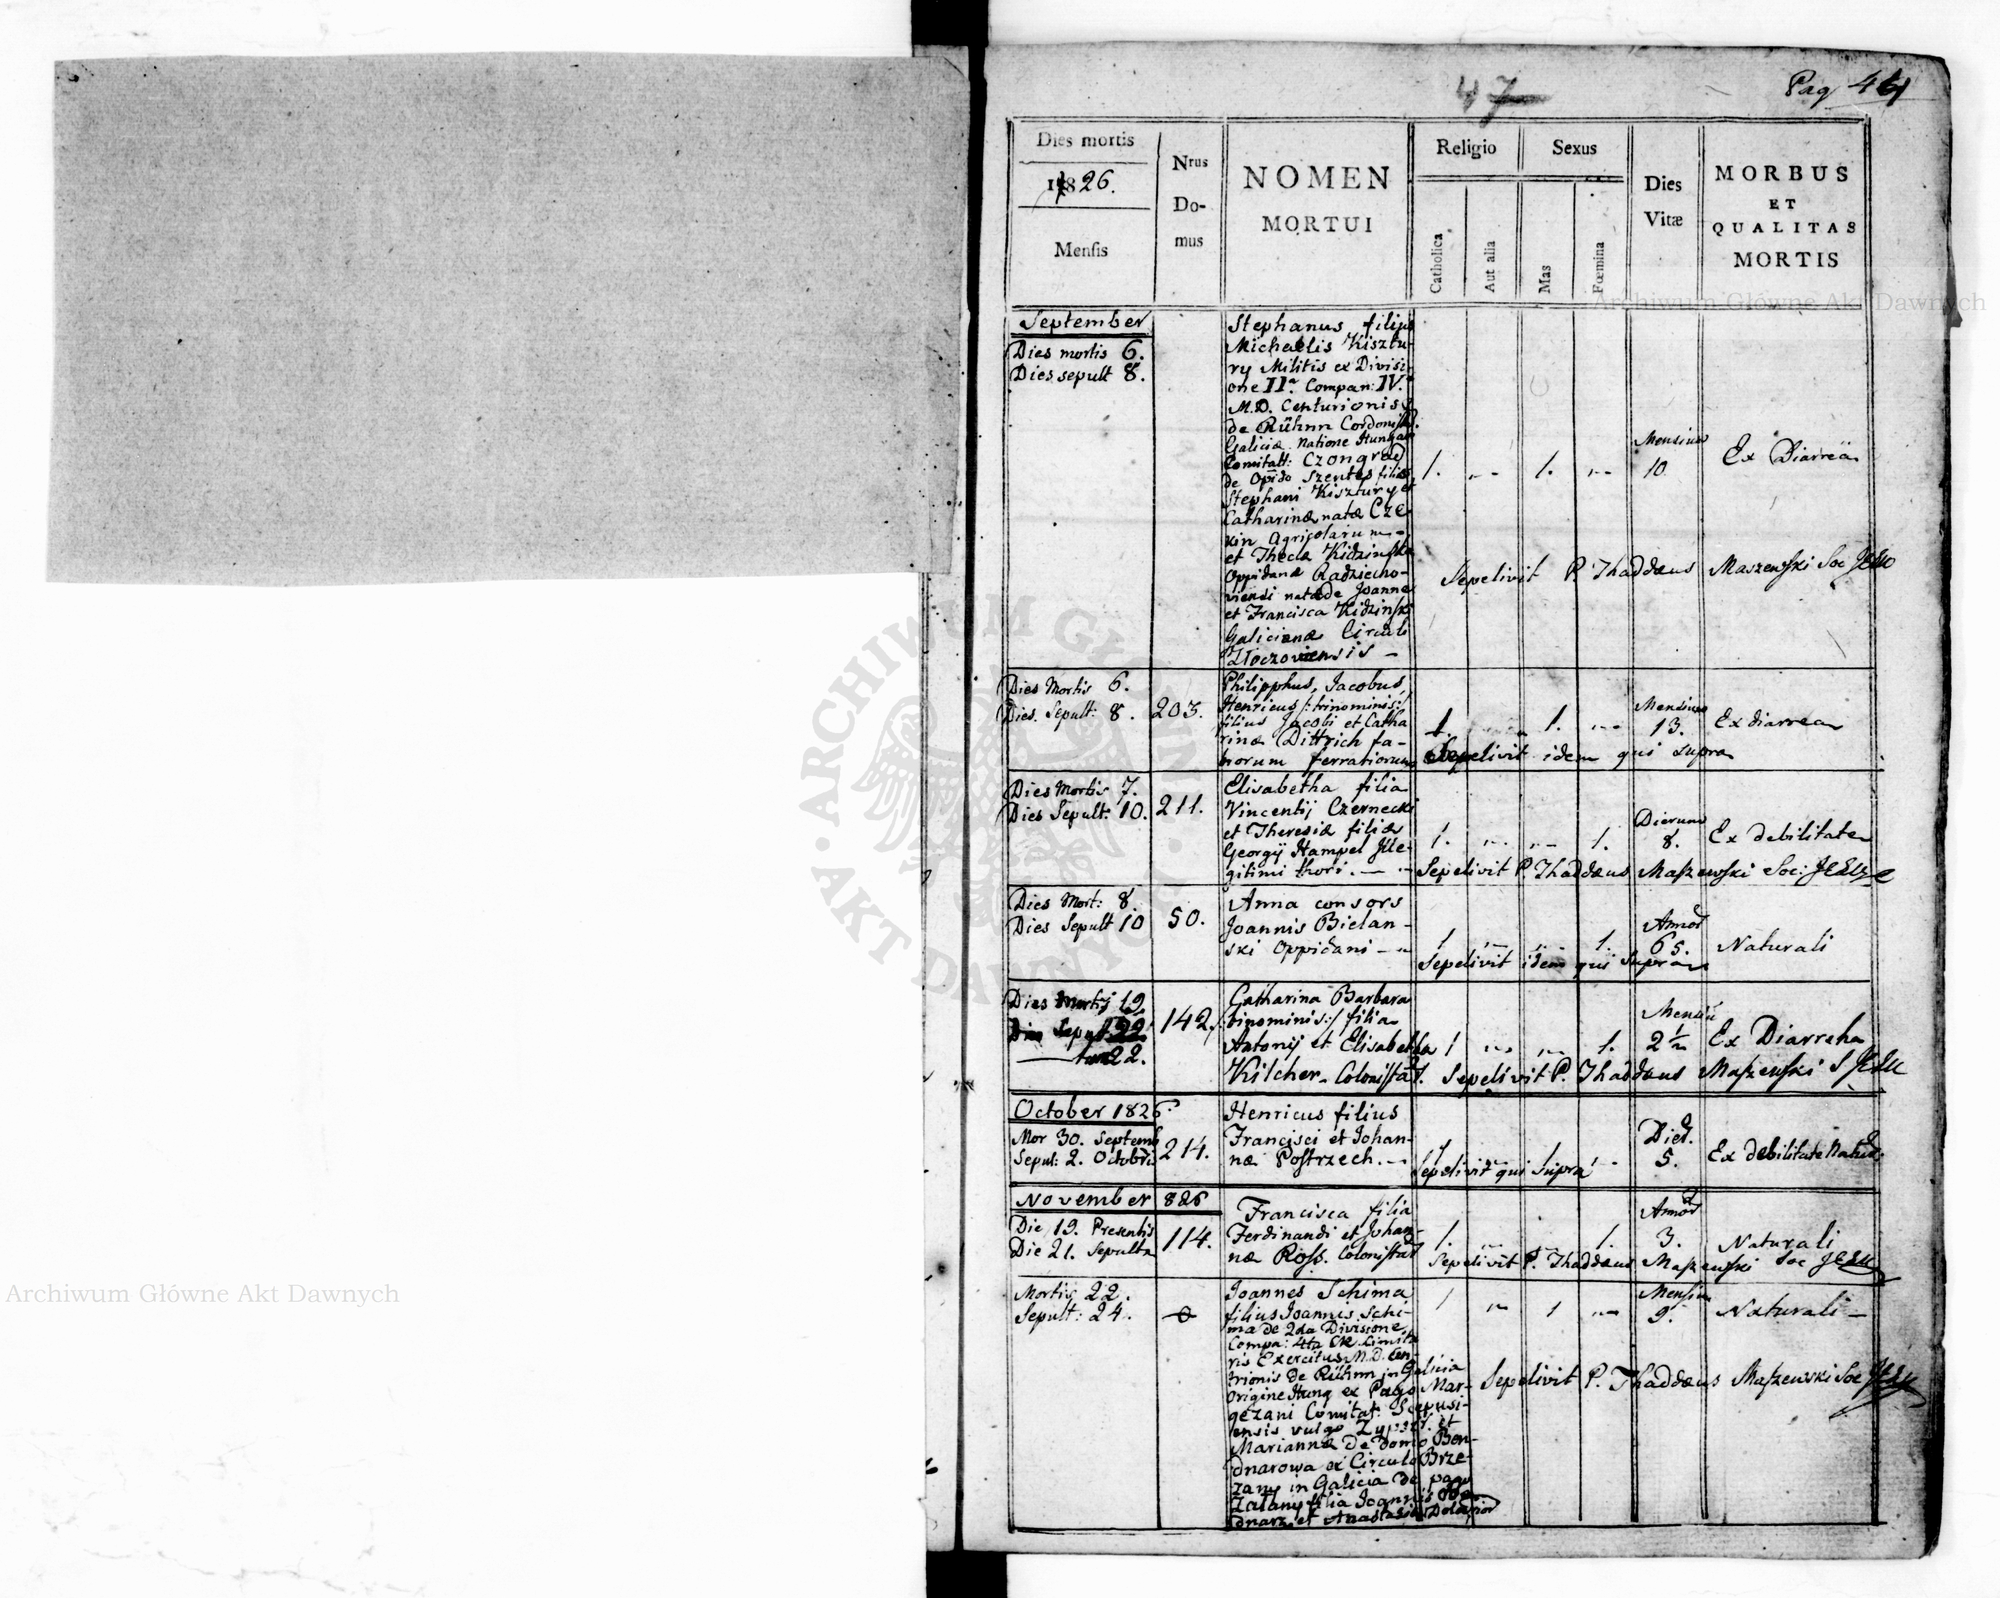 47
Pag 461
Dies mortis
1826.
Mensis
Nrus
Do-
mus
NOMEN
MORTUI
Religio
Catholica
Aut alia
Sexus
Mas
Fœmina
Dies
Vitæ
MORBUS
ET
QUALITAS
MORTIS
Archiwum Główne Akt Dawnych
September
Dies mortis 6.
Dies sepult 8.
Stephanus filius
Michaelis Kisztu-
ry Militis ex Divisi-
one IIa. Compan: IV.
M.D. Centurionis
de Rühnn Cordonist.
Galiciæ Natione Hungar
Comitatt: Czongrad
de Opido Szentes filius
Stephani Kisztury et
Catharinæ natæ Cze
kin Agricolarum -
et Thecla Kidzinska
Oppidanæ Radziecho-
viensi natæ de Joanne
et Francisca Kidzinski
Galicianæ Circuli
Zloczoviensis -
1. „- 1. „-
Mensium
10
Ex Diarrea
Sepelivit P. Thaddæus Maszewski Soc Jesu
Dies Mortis 6.
Dies. Sepult: 8.
203.
Philipphus, Jacobus,
Henricus /: trinominis:/
filius Jacobi et Catha
rinæ Dittrich fa-
brorum ferrariorum
1. 1. „-
Mensium
13.
Ex diarrea
Sepelivit idem qui supra
Dies Mortis 7.
Dies Sepult: 10.
211.
Elisabetha filia
Vincentij Czernecki
et Theresiæ filiæ
Georgij Hampel Ille-
gitimi thori. -
1. „- „- 1.
Dierum
8.
Ex debilitate
Sepelivit P. Thaddæus Maszewski Soc: Jesu
Dies Mort: 8.
Dies Sepult 10
50.
Anna consors
Joannis Bielan-
ski Oppidani -
1 „- 1.
Annor
65.
Naturali
Sepelivit idem qui supra
Dies Mortis 19.
Dies Sepult 22
22.
142.
Catharina Barbara
/:binominis:/ filia
Antonij et Elisabetha
Kilcher - Colonistar.
1 „- „- 1.
Mensiu
2 1/2
Ex Diarreha
Sepelivit P. Thaddæus Maszewski S Jesu
October 1826.
Mor 30. Septemb
Sepul: 2. Octobris
214.
Henricus filius
Francisci et Johan-
næ Postrzech. -
1 „- 1 „-
Dier.
5.
Ex debilitate Natur.
Sepelivit qui supra
November 826
Die 19. Presentis
Die 21. Sepulta
114.
Francisca filia
Ferdinandi et Johan-
næ Ross. Colonistar
1. „- 1.
Annor
3.
Naturali
Sepelivit P. Thaddæus Maszewski Soc Jesu
Mortis 22.
Sepult: 24.
0
Joannes Schima
filius Joannis Schi-
ma de 2da Divisione
Compa: 4ta
Exercitus M.D. Cen-
trionis de Rühnn in Galicia
Origine Hung ex Pago Mar-
gezani Comitat: Scepusi-
ensis vulgo et
Mariannæ de Domo Bed-
dnarowa ex Circulo Brze-
zany in Galicia de pago
Zalany filia Joannis Be-
dnarz et Anastasia
1 „- 1 „-
Mensium
9.
Naturali -
Sepelivit P. Thaddæus Maszewski Soc Jesu
Archiwum Główne Akt Dawnych
ARCHIWUM GŁÓWNE · AKT DAWNYCH ·